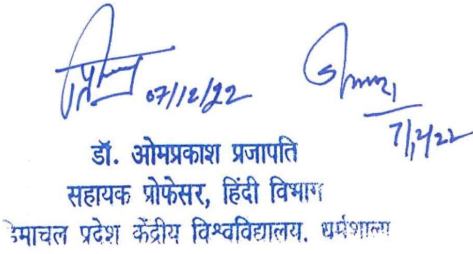 07/12/22
7/12/22
डॉ. ओमप्रकाश प्रजापति
सहायक प्रोफेसर, हिंदी विभाग
हिमाचल प्रदेश केंद्रीय विश्वविद्यालय. धर्मशाला